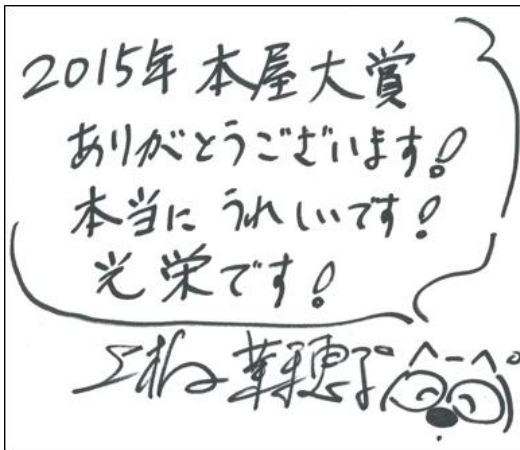 2015年 本屋大賞
ありがとうございます!
本当に うれしいです!
光栄です!
上橋 菜穂子